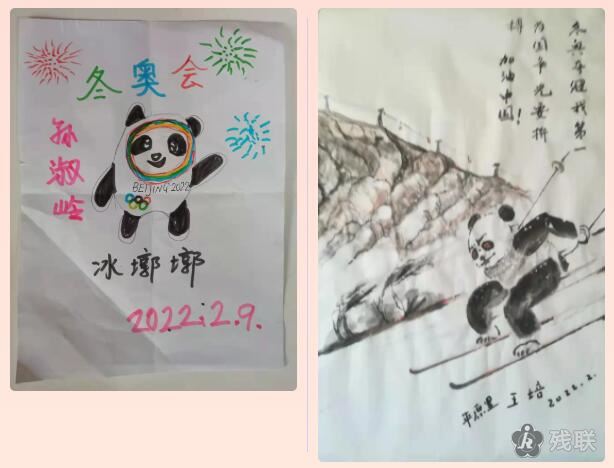 冬奥会
孙淑岭
BEIJING 2022
冰墎墎
2022.2.9.
冬奥夺冠我第一
为国争光要拼
搏 加油中国!
平原里 王培 2022.2.
残联